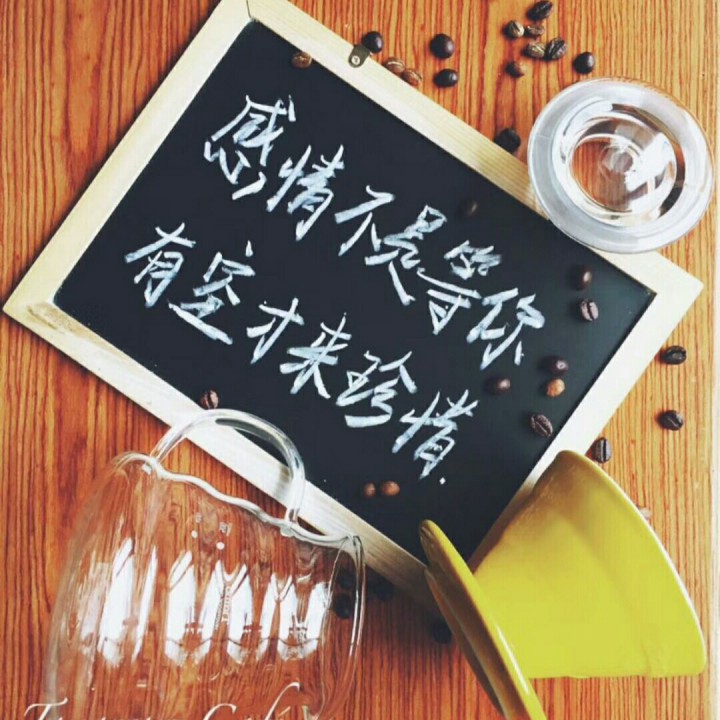 感情不是等你
有空才来珍惜.